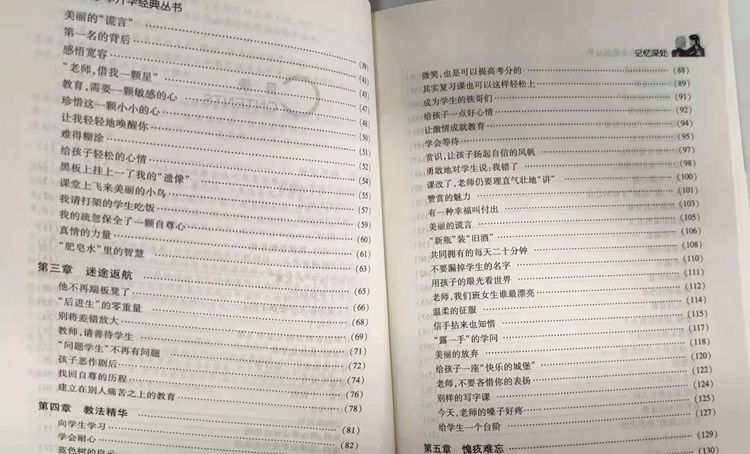 升华经典丛书
美丽的“谎言” (39)
第一名的背后 (41)
感悟宽容 (43)
“老师,借我一颗星” (47)
教育,需要一颗敏感的心 (48)
珍惜这一颗小小的心 (50)
让我轻轻地唤醒你 (51)
难得糊涂 (52)
给孩子轻松的心情 (54)
黑板上挂上一了我的“遗像” (55)
课堂上飞来美丽的小鸟 (57)
我请打架的学生吃饭 (59)
我的疏忽保全了一颗自尊心 (60)
真情的力量 (61)
“肥皂水”里的智慧 (63)
第三章 迷途返航
他不再踹板凳了 (65)
“后进生”的零重量 (66)
别将差错放大 (68)
教师,请善待学生 (69)
“问题学生”不再有问题 (71)
孩子恶作剧后 (74)
找回自尊的历程 (76)
建立在别人痛苦之上的教育 (78)
第四章 教法精华
向学生学习 (81)
学会耐心 (82)
蓝色树的启示
记忆深处
微笑,也是可以提高考分的 (88)
其实复习课也可以这样轻松上 (89)
成为学生的铁哥们 (91)
给孩子一点好心情 (92)
让激情成就教育 (94)
学会等待 (95)
赏识,让孩子扬起自信的风帆 (97)
勇敢地对学生说:我错了 (98)
课改了,老师仍要理直气壮地“讲” (100)
赞赏的魅力 (101)
有一种幸福叫付出 (103)
美丽的谎言 (105)
“新瓶”装“旧酒” (106)
共同拥有的每天二十分钟 (108)
不要漏掉学生的名字 (110)
用孩子的眼光看世界 (111)
老师,我们班女生谁最漂亮 (112)
温柔的征服 (114)
信手拈来也知惜 (115)
“露一手”的学问 (117)
美丽的放弃 (118)
给孩子一座“快乐的城堡” (120)
老师,不要吝惜你的表扬 (122)
别样的写字课 (124)
今天,老师的嗓子好疼 (125)
给学生一个台阶 (127)
第五章 愧疚难忘
(130)